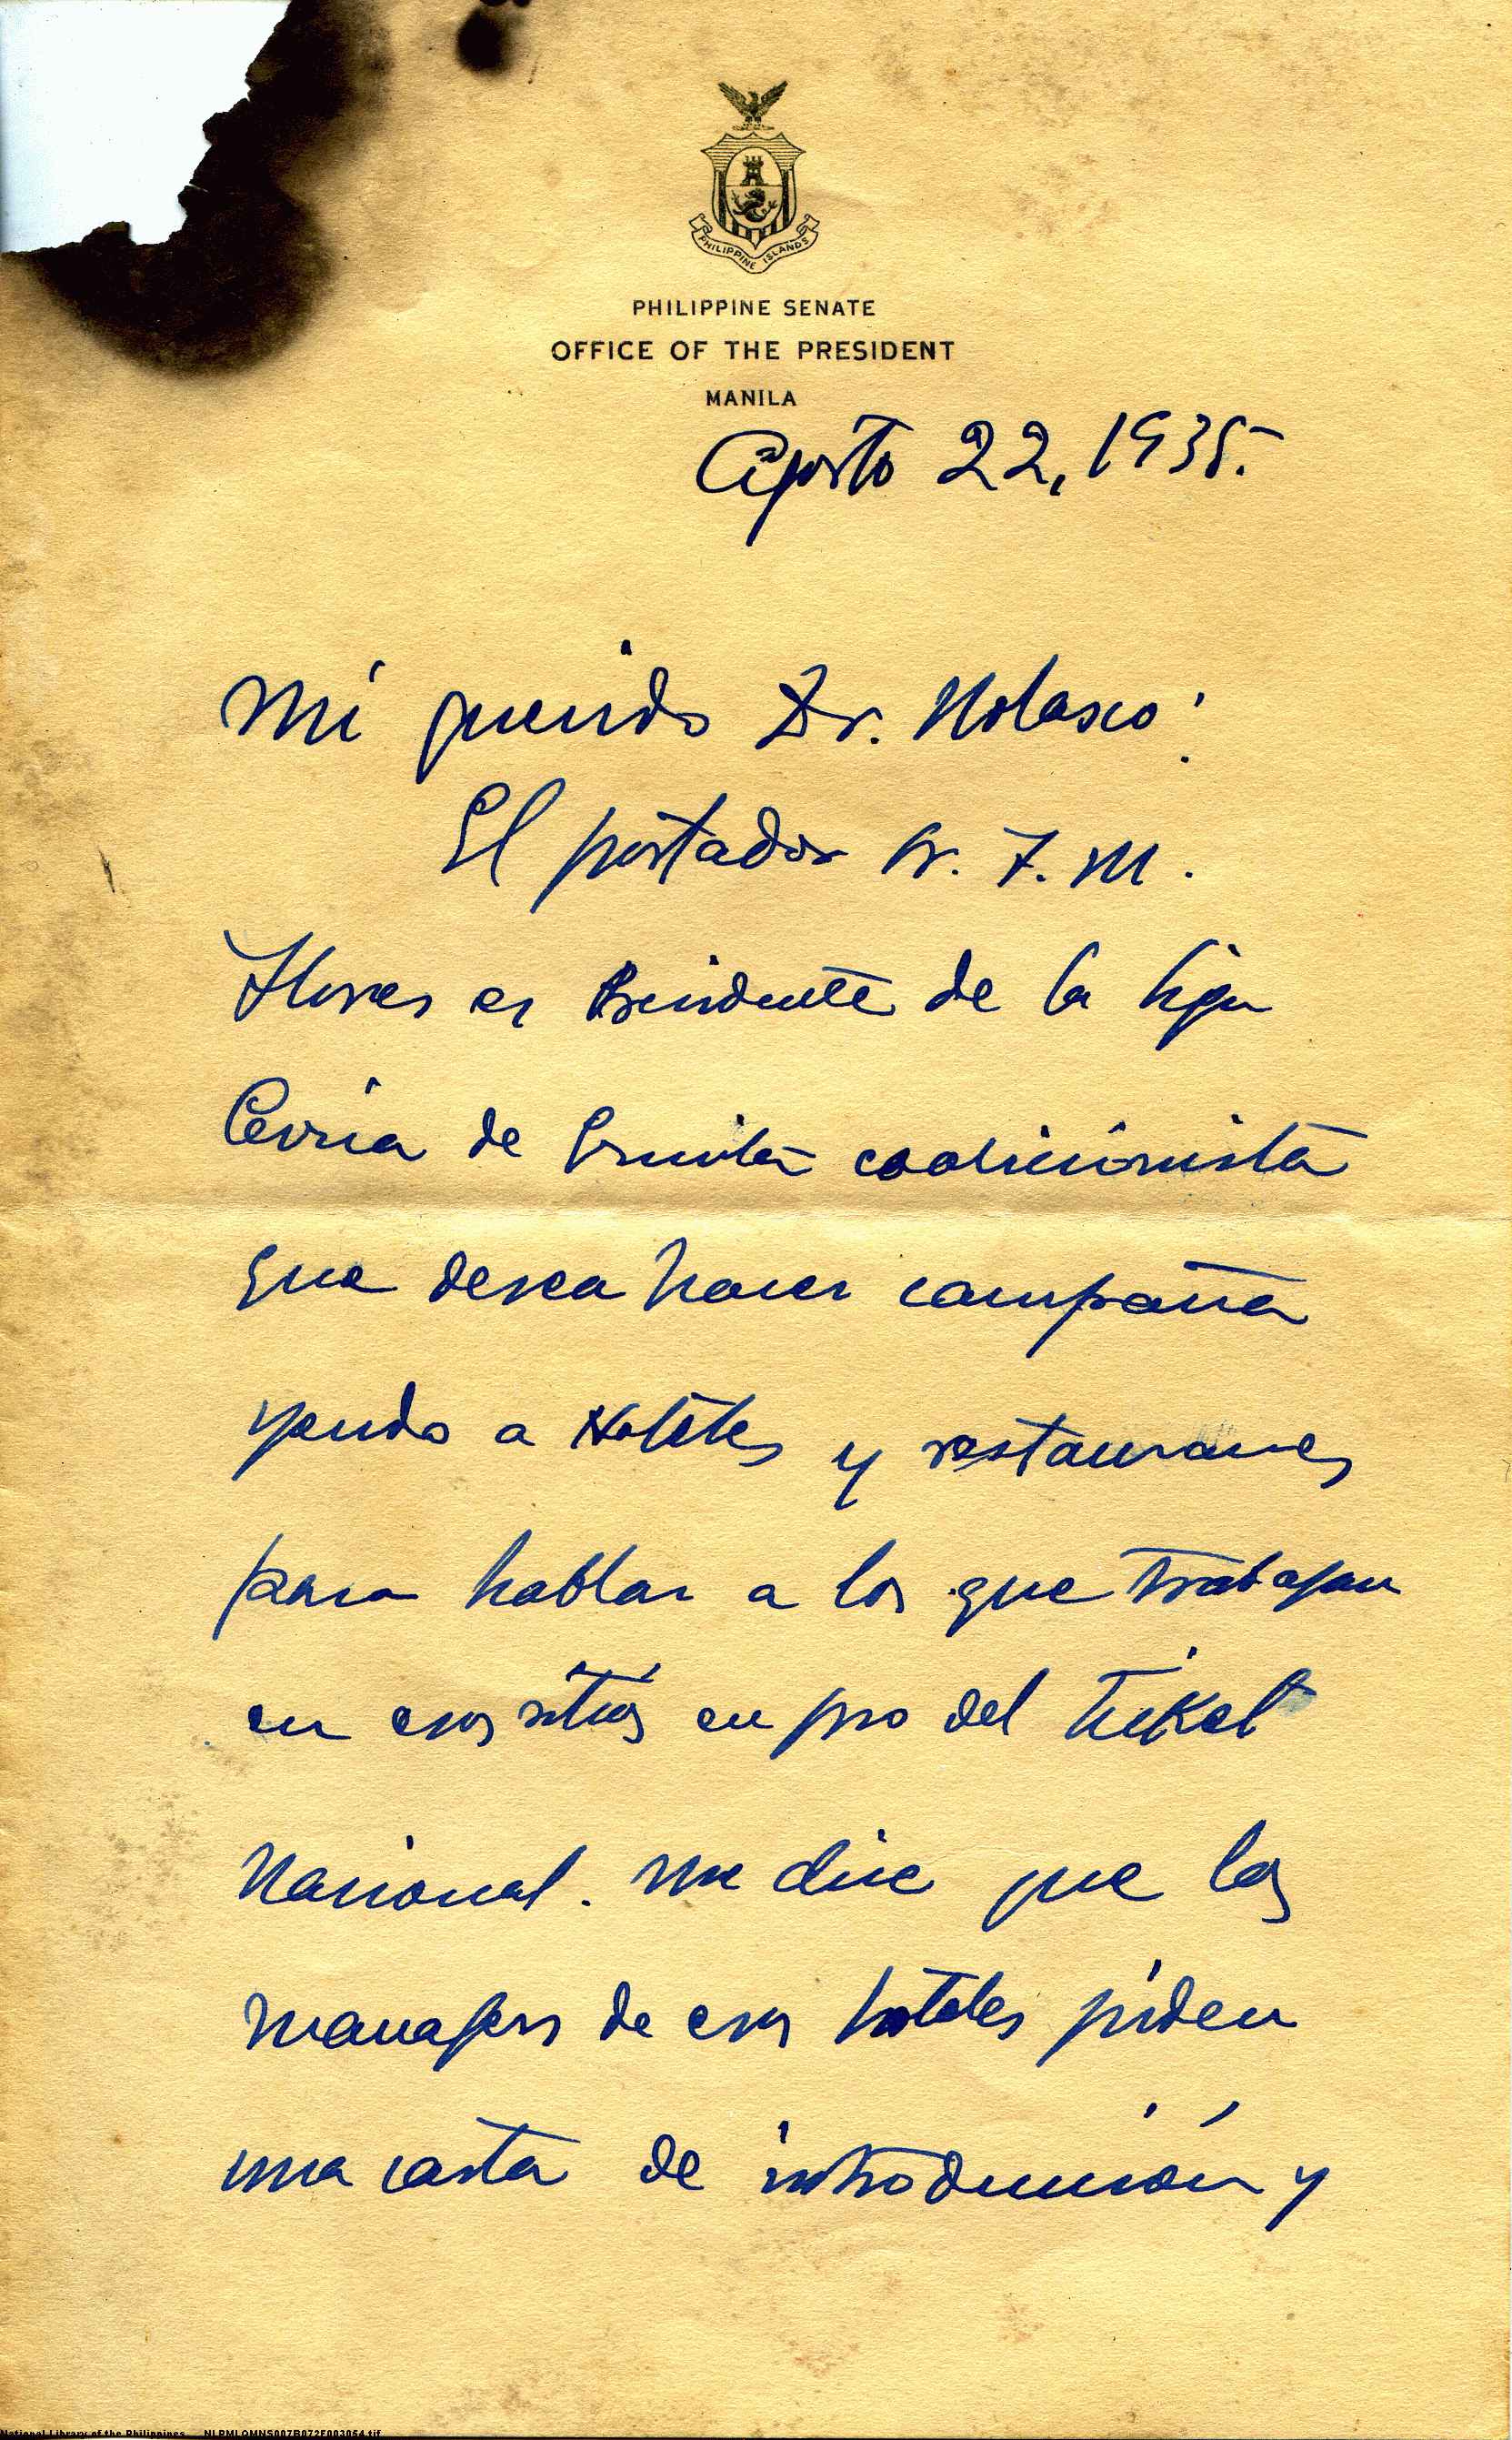 PHILIPPINE ISLANDS
PHILIPPINE SENATE
OFFICE OF THE PRESIDENT
MANILA
Agosto 22, 1935.
Mi querido Dr. Nolasco:
El portador Sr. F. M.
Flores es Presidente de la Liga
Cívica de Ermita coalicionista
que desea hacer campaña
yendo a Hoteles y restauranes
para hablar a los que trabajan
en esos sitios en pro del ticket
Nacional. Me dice que los
managers de esos hoteles piden
una carta de introducción y
National Library of the Philippines NLPMLQMNS007B072F003054.tif